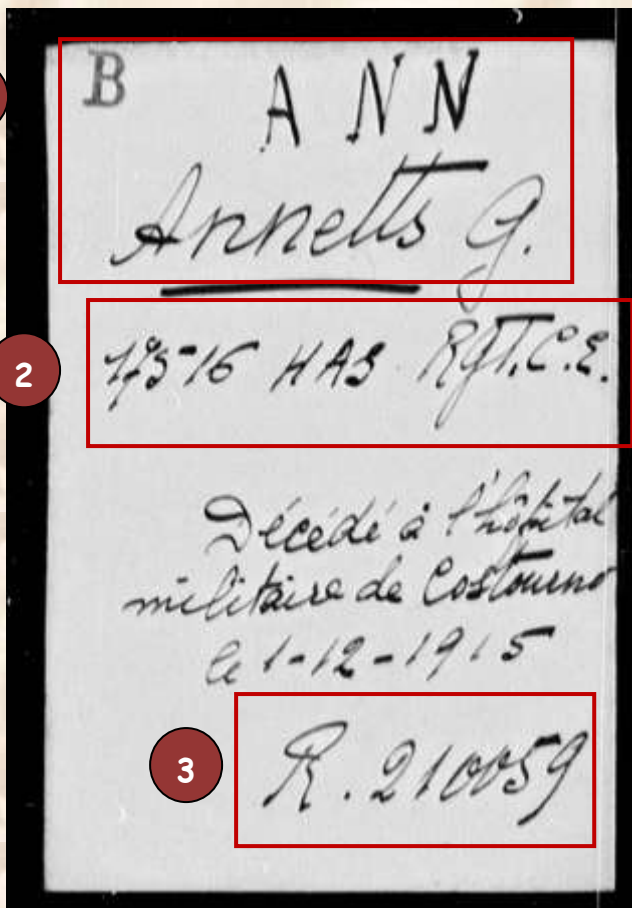 B A N N
Annetts G.
2
17516 HAS Rgt. C.E.
Décédé à l'hôpital
militaire de Costourno
le 1-12-1915
3
R. 210059